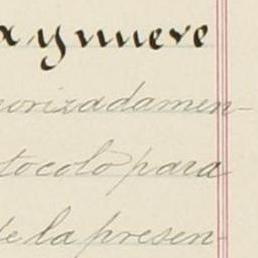 a y nueve
orizadamen-
tocolo para
de la presen-